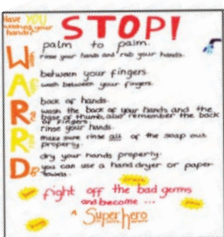 Have YOU
washing your
hands?
STOP!
W palm to palm.
rinse your hands and rub your hands.
A between your fingers.
wash between your fingers.
R back of hands.
wash the back of your hands and the
base of thumb, also remember the back
of fingers.
R rinse your hands.
make sure rinse all of the soap out
properly.
D dry your hands properly.
you can use a hand dryer or paper
towels.
fight off the bad germs
and become ...
a Superhero